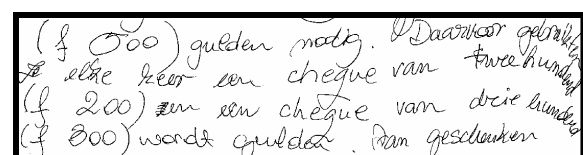 (f 500) gulden nodig. Daarvoor gebruikten
ze elke keer een cheque van twee hunderd
(f 200) en een cheque van drie hunderd
(f 300) wordt gulden. Aan geschenken